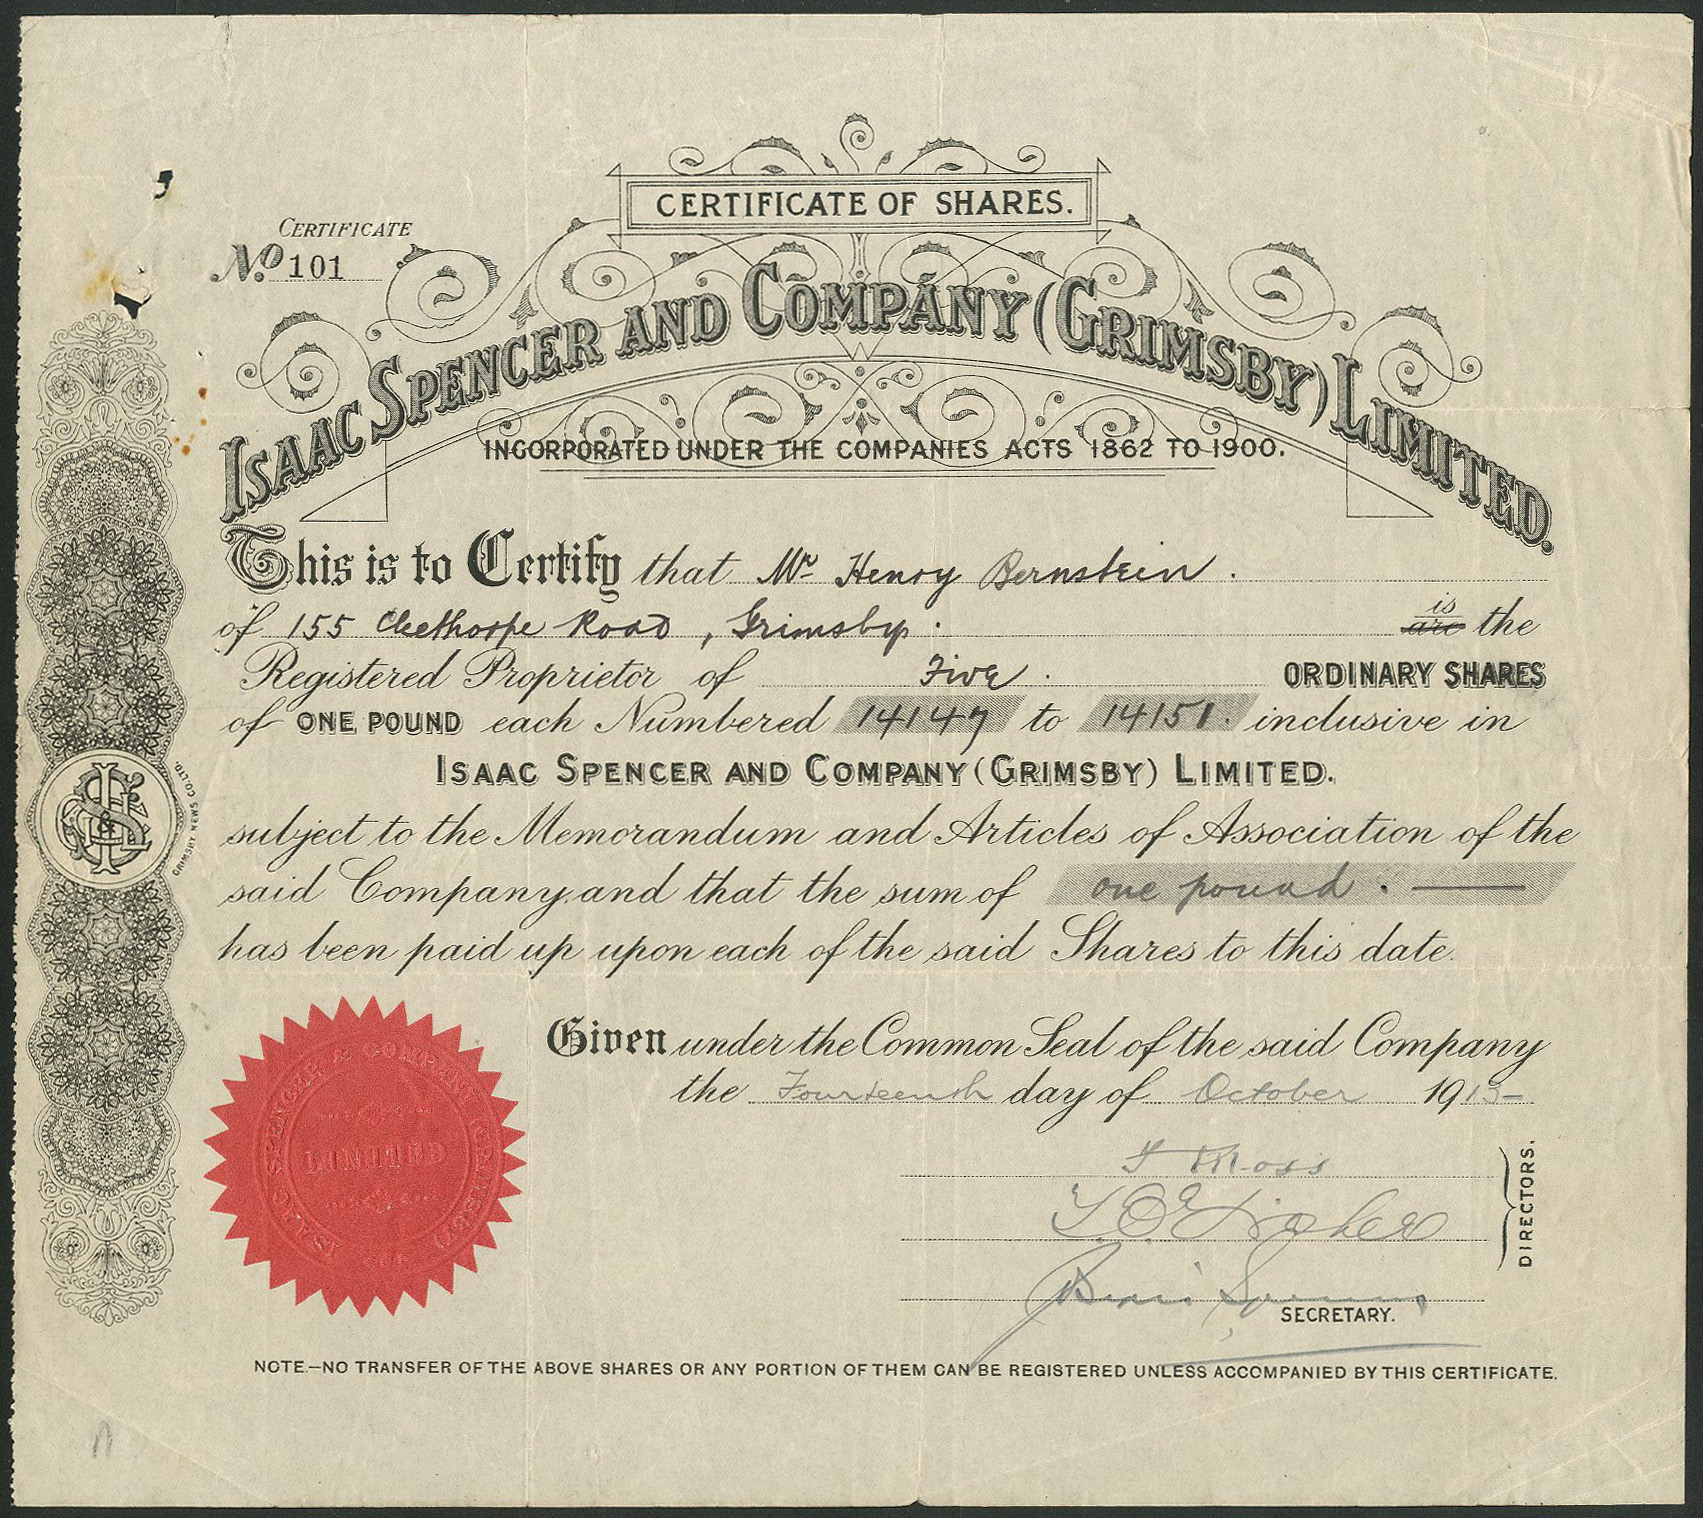 CERTIFICATE OF SHARES.
CERTIFICATE
No. 101
ISAAC SPENCER AND COMPANY (GRIMSBY) LIMITED.
INCORPORATED UNDER THE COMPANIES ACTS 1862 TO 1900.
This is to Certify that Mr Henry Bernstein.
of 155 Cleethorpe Road, Grimsby. is are the
Registered Proprietor of Five. ORDINARY SHARES
of ONE POUND each Numbered 14147 to 14151. inclusive in
ISAAC SPENCER AND COMPANY (GRIMSBY) LIMITED.
subject to the Memorandum and Articles of Association of the
said Company, and that the sum of one pound.
has been paid up upon each of the said Shares to this date.
Given under the Common Seal of the said Company
the Fourteenth day of October 1913
Moss
DIRECTORS.
SECRETARY.
NOTE.—NO TRANSFER OF THE ABOVE SHARES OR ANY PORTION OF THEM CAN BE REGISTERED UNLESS ACCOMPANIED BY THIS CERTIFICATE.
GRIMSBY NEWS CO. LTD.
ISAAC SPENCER & COMPANY (GRIMSBY)
LIMITED